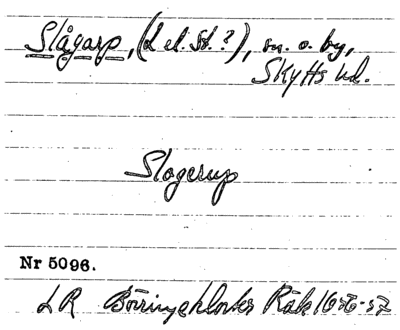 Slågarp, (L el. St.?), sn. o. by,
Skytts hd.
Slogerup
Nr 5096.
LR Börringeklosters Räk 1656-57